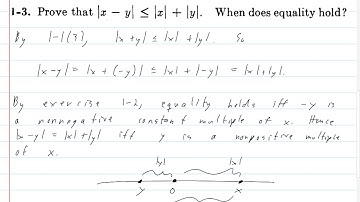 1-3. Prove that |x − y| ≤ |x| + |y|. When does equality hold?
By 1-1(3), |x+y| ≤ |x| + |y|. So
|x-y| = |x + (-y)| ≤ |x| + |-y| = |x| + |y|.
By exercise 1-2, equality holds iff -y is
a nonnegative constant multiple of x. Hence
|x-y| = |x| + |y| iff y is a nonpositive multiple
of x.
|y| |x|
y 0 x